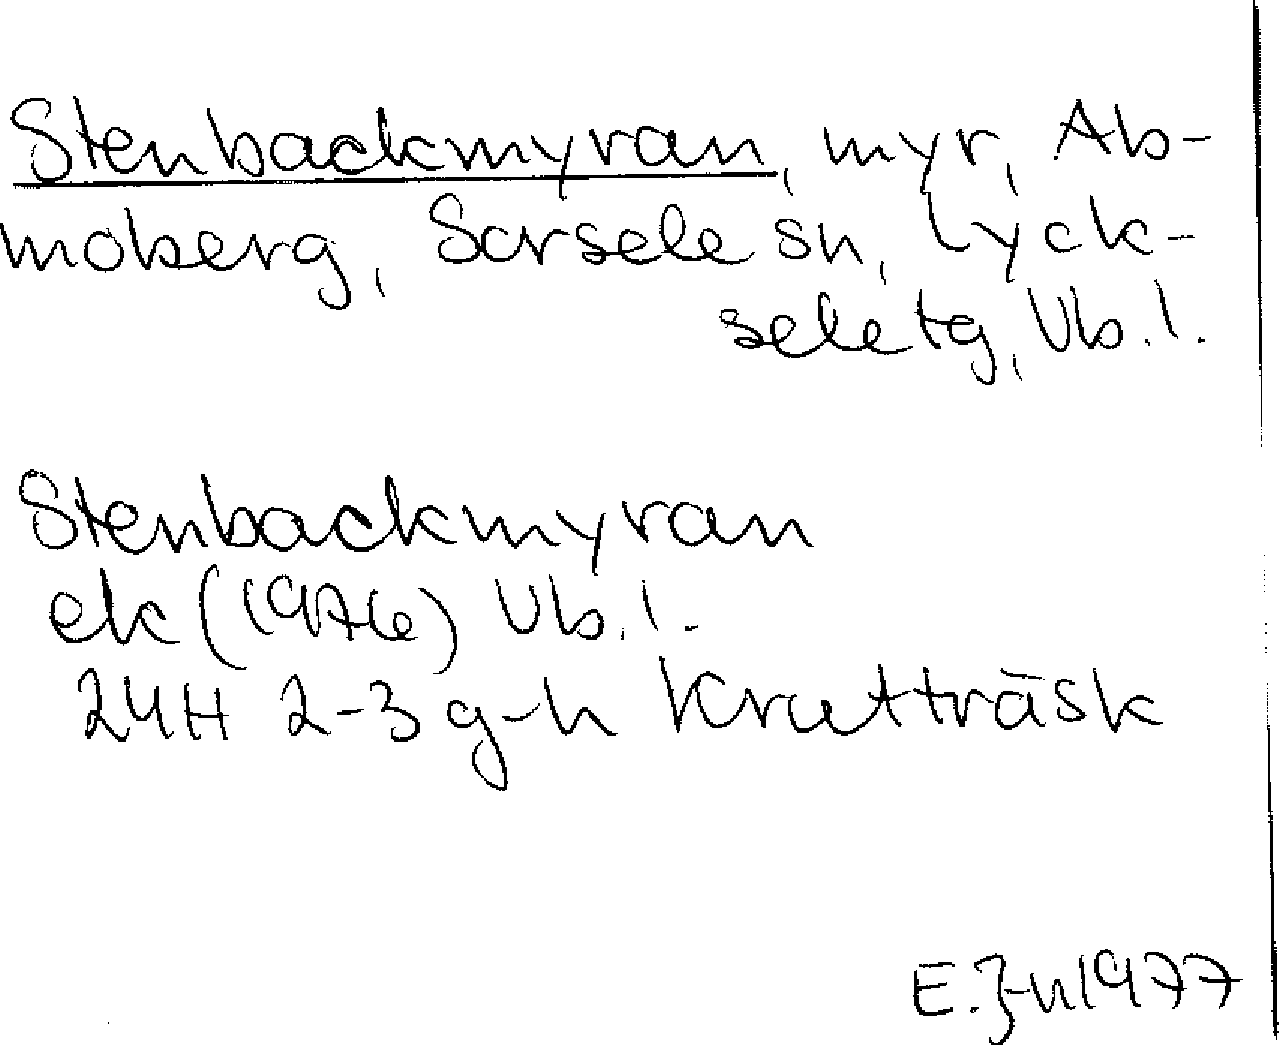 Stenbackmyran, myr, Ab-
moberg, Sorsele sn, Lyck-
sele tg, Vb. l.
Stenbackmyran
ek (1976) Vb. l.
24H 2-3 g-h Krutträsk
E. J-n 1977